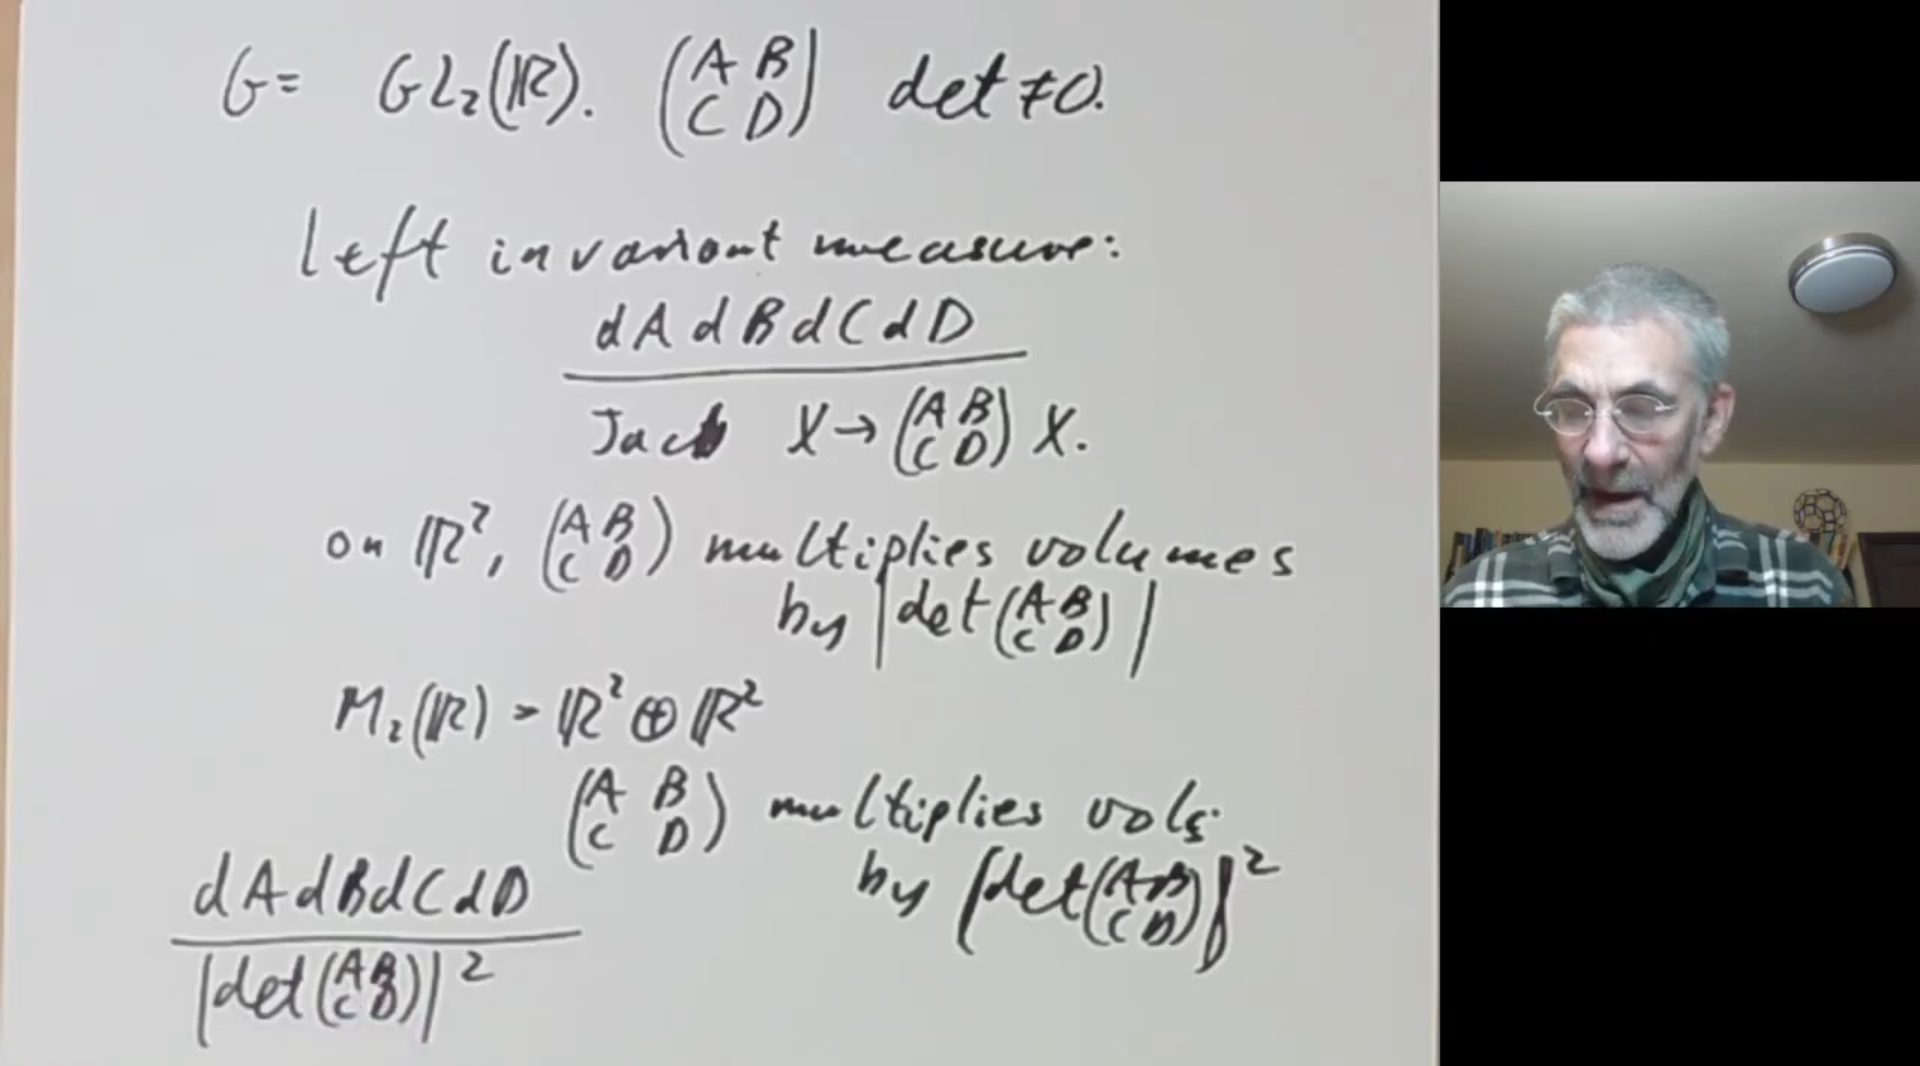 G = GL₂(ℝ). (A B C D) det ≠ 0.
left invariant measure:
dA dB dC dD
Jac X → (A B C D) X.
on ℝ², (A B C D) multiplies volumes
by |det(A B C D)|
M₂(ℝ) = ℝ² ⊕ ℝ²
(A B C D) multiplies vols.
by |det(A B C D)|²
dA dB dC dD
|det(A B C D)|²